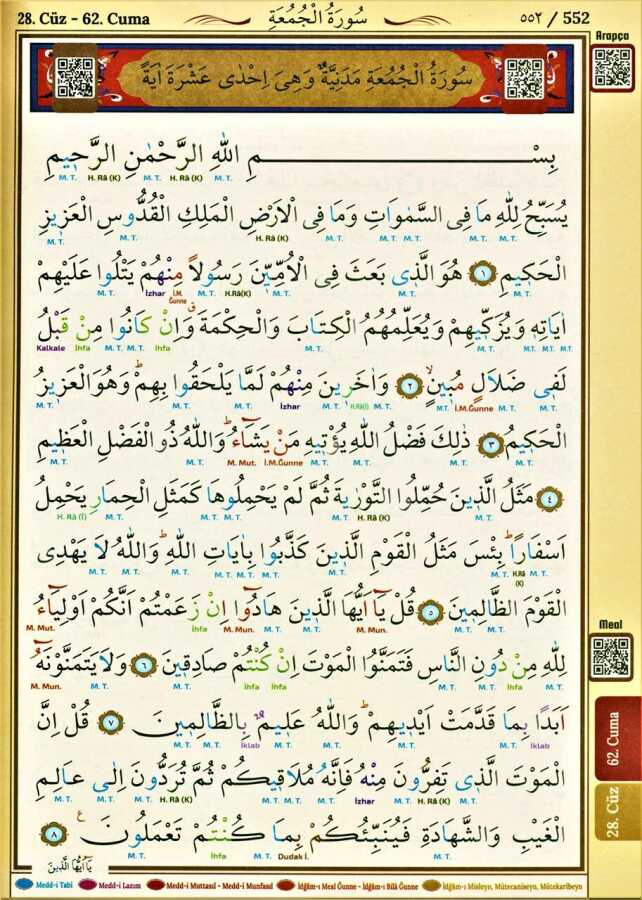 28. Cüz - 62. Cuma سُورَةُ الْجُمُعَةِ ٥٥٢ / 552
Arapça
سُورَةُ الْجُمُعَةِ مَدَنِيَّةٌ وَهِىَ اِحْدٰى عَشْرَةَ اٰيَةً
بِسْمِ اللّٰهِ الرَّحْمٰنِ الرَّحٖيمِ
M. T. H. Râ (K) M. T. H. Râ (K) M. T.
يُسَبِّحُ لِلّٰهِ مَا فِى السَّمٰوَاتِ وَمَا فِى الْاَرْضِ الْمَلِكِ الْقُدُّوسِ الْعَزٖيزِ
M. T. M. T. H. Râ (K) M. T. M. T. M. T. M. T.
الْحَكٖيمِ ١ هُوَ الَّذٖى بَعَثَ فِى الْاُمِّيّٖنَ رَسُولاً مِنْهُمْ يَتْلُوا عَلَيْهِمْ
M. T. İzhar İ.M. Ğunne M. T. H.Râ(K) M. T. M. T.
اٰيَاتِهٖ وَيُزَكّٖيهِمْ وَيُعَلِّمُهُمُ الْكِتَابَ وَالْحِكْمَةَ وَاِنْ كَانُوا مِنْ قَبْلُ
Kalkale İhfa M. T. M. T. İhfa M. T. M. T. M.T. M.T. M.T.
لَفٖى ضَلَالٍ مُبٖينٍ ٢ وَاٰخَرٖينَ مِنْهُمْ لَمَّا يَلْحَقُوا بِهِمْ وَهُوَ الْعَزٖيزُ
M. T. M. T. M. T. İzhar M. T. H.Râ(İ) M. T. M.T. İ.M.Ğunne M. T. M. T.
الْحَكٖيمُ ٣ ذٰلِكَ فَضْلُ اللّٰهِ يُؤْتٖيهِ مَنْ يَشَاءُ وَاللّٰهُ ذُو الْفَضْلِ الْعَظٖيمِ
M. T. M. T. M. Mut. İ.M.Ğunne M. T. M. T. M. T. M. T.
٤ مَثَلُ الَّذٖينَ حُمِّلُوا التَّوْرٰيةَ ثُمَّ لَمْ يَحْمِلُوهَا كَمَثَلِ الْحِمَارِ يَحْمِلُ
H. Râ (İ) M. T. M. T. M. T. M. T. H. Râ (K) M. T.
اَسْفَاراً بِئْسَ مَثَلُ الْقَوْمِ الَّذٖينَ كَذَّبُوا بِاٰيَاتِ اللّٰهِ وَاللّٰهُ لَا يَهْدِى
M. T. M. T. M. T. M. T. M. T. M. T. M. T. M. T. H.Râ (K) M. T.
الْقَوْمَ الظَّالِمٖينَ ٥ قُلْ يَا اَيُّهَا الَّذٖينَ هَادُوا اِنْ زَعَمْتُمْ اَنَّكُمْ اَوْلِيَاءُ
M. Mut. İhfa M. Mun. M. T. M. T. M. Mun. M. T. M. T.
لِلّٰهِ مِنْ دُونِ النَّاسِ فَتَمَنَّوُا الْمَوْتَ اِنْ كُنْتُمْ صَادِقٖينَ ٦ وَلَا يَتَمَنَّوْنَهُ
M. Mun. M. T. M. T. İhfa İhfa M. T. M. T. İhfa M. T.
اَبَدًا بِمَا قَدَّمَتْ اَيْدٖيهِمْ وَاللّٰهُ عَلٖيمٌ بِالظَّالِمٖينَ ٧ قُلْ اِنَّ
M. T. M. T. İklab M. T. M. T. M. T. M. T. İklab
الْمَوْتَ الَّذٖى تَفِرُّونَ مِنْهُ فَاِنَّهُ مُلَاقٖيكُمْ ثُمَّ تُرَدُّونَ اِلٰى عَالِمِ
M. T. M. T. H. Râ (K) M. T. M. T. M. T. İzhar M. T. H. Râ (K) M. T.
الْغَيْبِ وَالشَّهَادَةِ فَيُنَبِّئُكُمْ بِمَا كُنْتُمْ تَعْمَلُونَ ٨
M. T. İhfa M. T. Dudak İ. M. T.
يَا اَيُّهَا الَّذٖينَ
Meal
62. Cuma
28. Cüz
Medd-i Tabî Medd-i Lazım Medd-i Muttasıl - Medd-i Munfasıl İdğam-ı Meal Ğunne - İdğam-ı Bilâ Ğunne İdğam-ı Misleyn, Mütecaniseyn, Mütekaribeyn